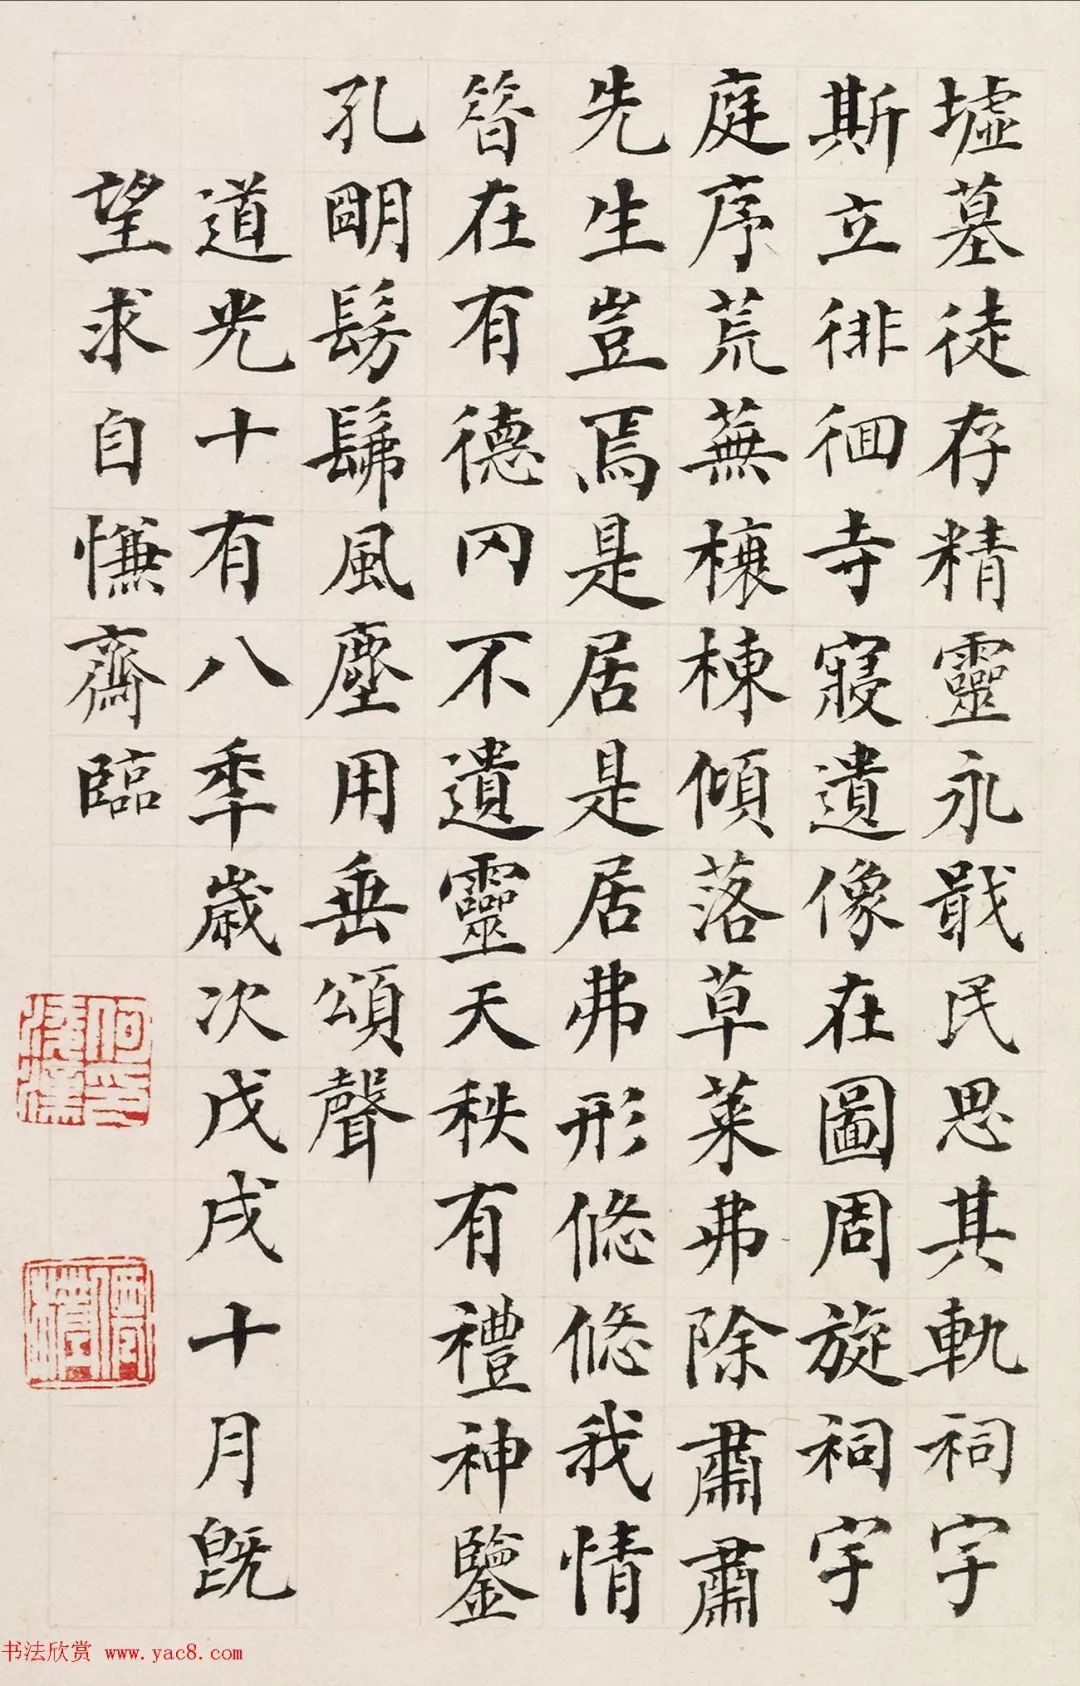 墟墓徒存精靈永戢民思其軌祠宇
斯立徘徊寺寢遺像在圖周旋祠宇
庭序荒蕪榱棟傾落草萊弗除肅肅
先生豈焉是居是居弗形悠悠我情
昔在有德罔不遺靈天秩有禮神鑒
孔朙髣髴風塵用垂頌聲
道光十有八秊歲次戊戌十月既
望求自慊齋臨
书法欣赏 www.yac8.com